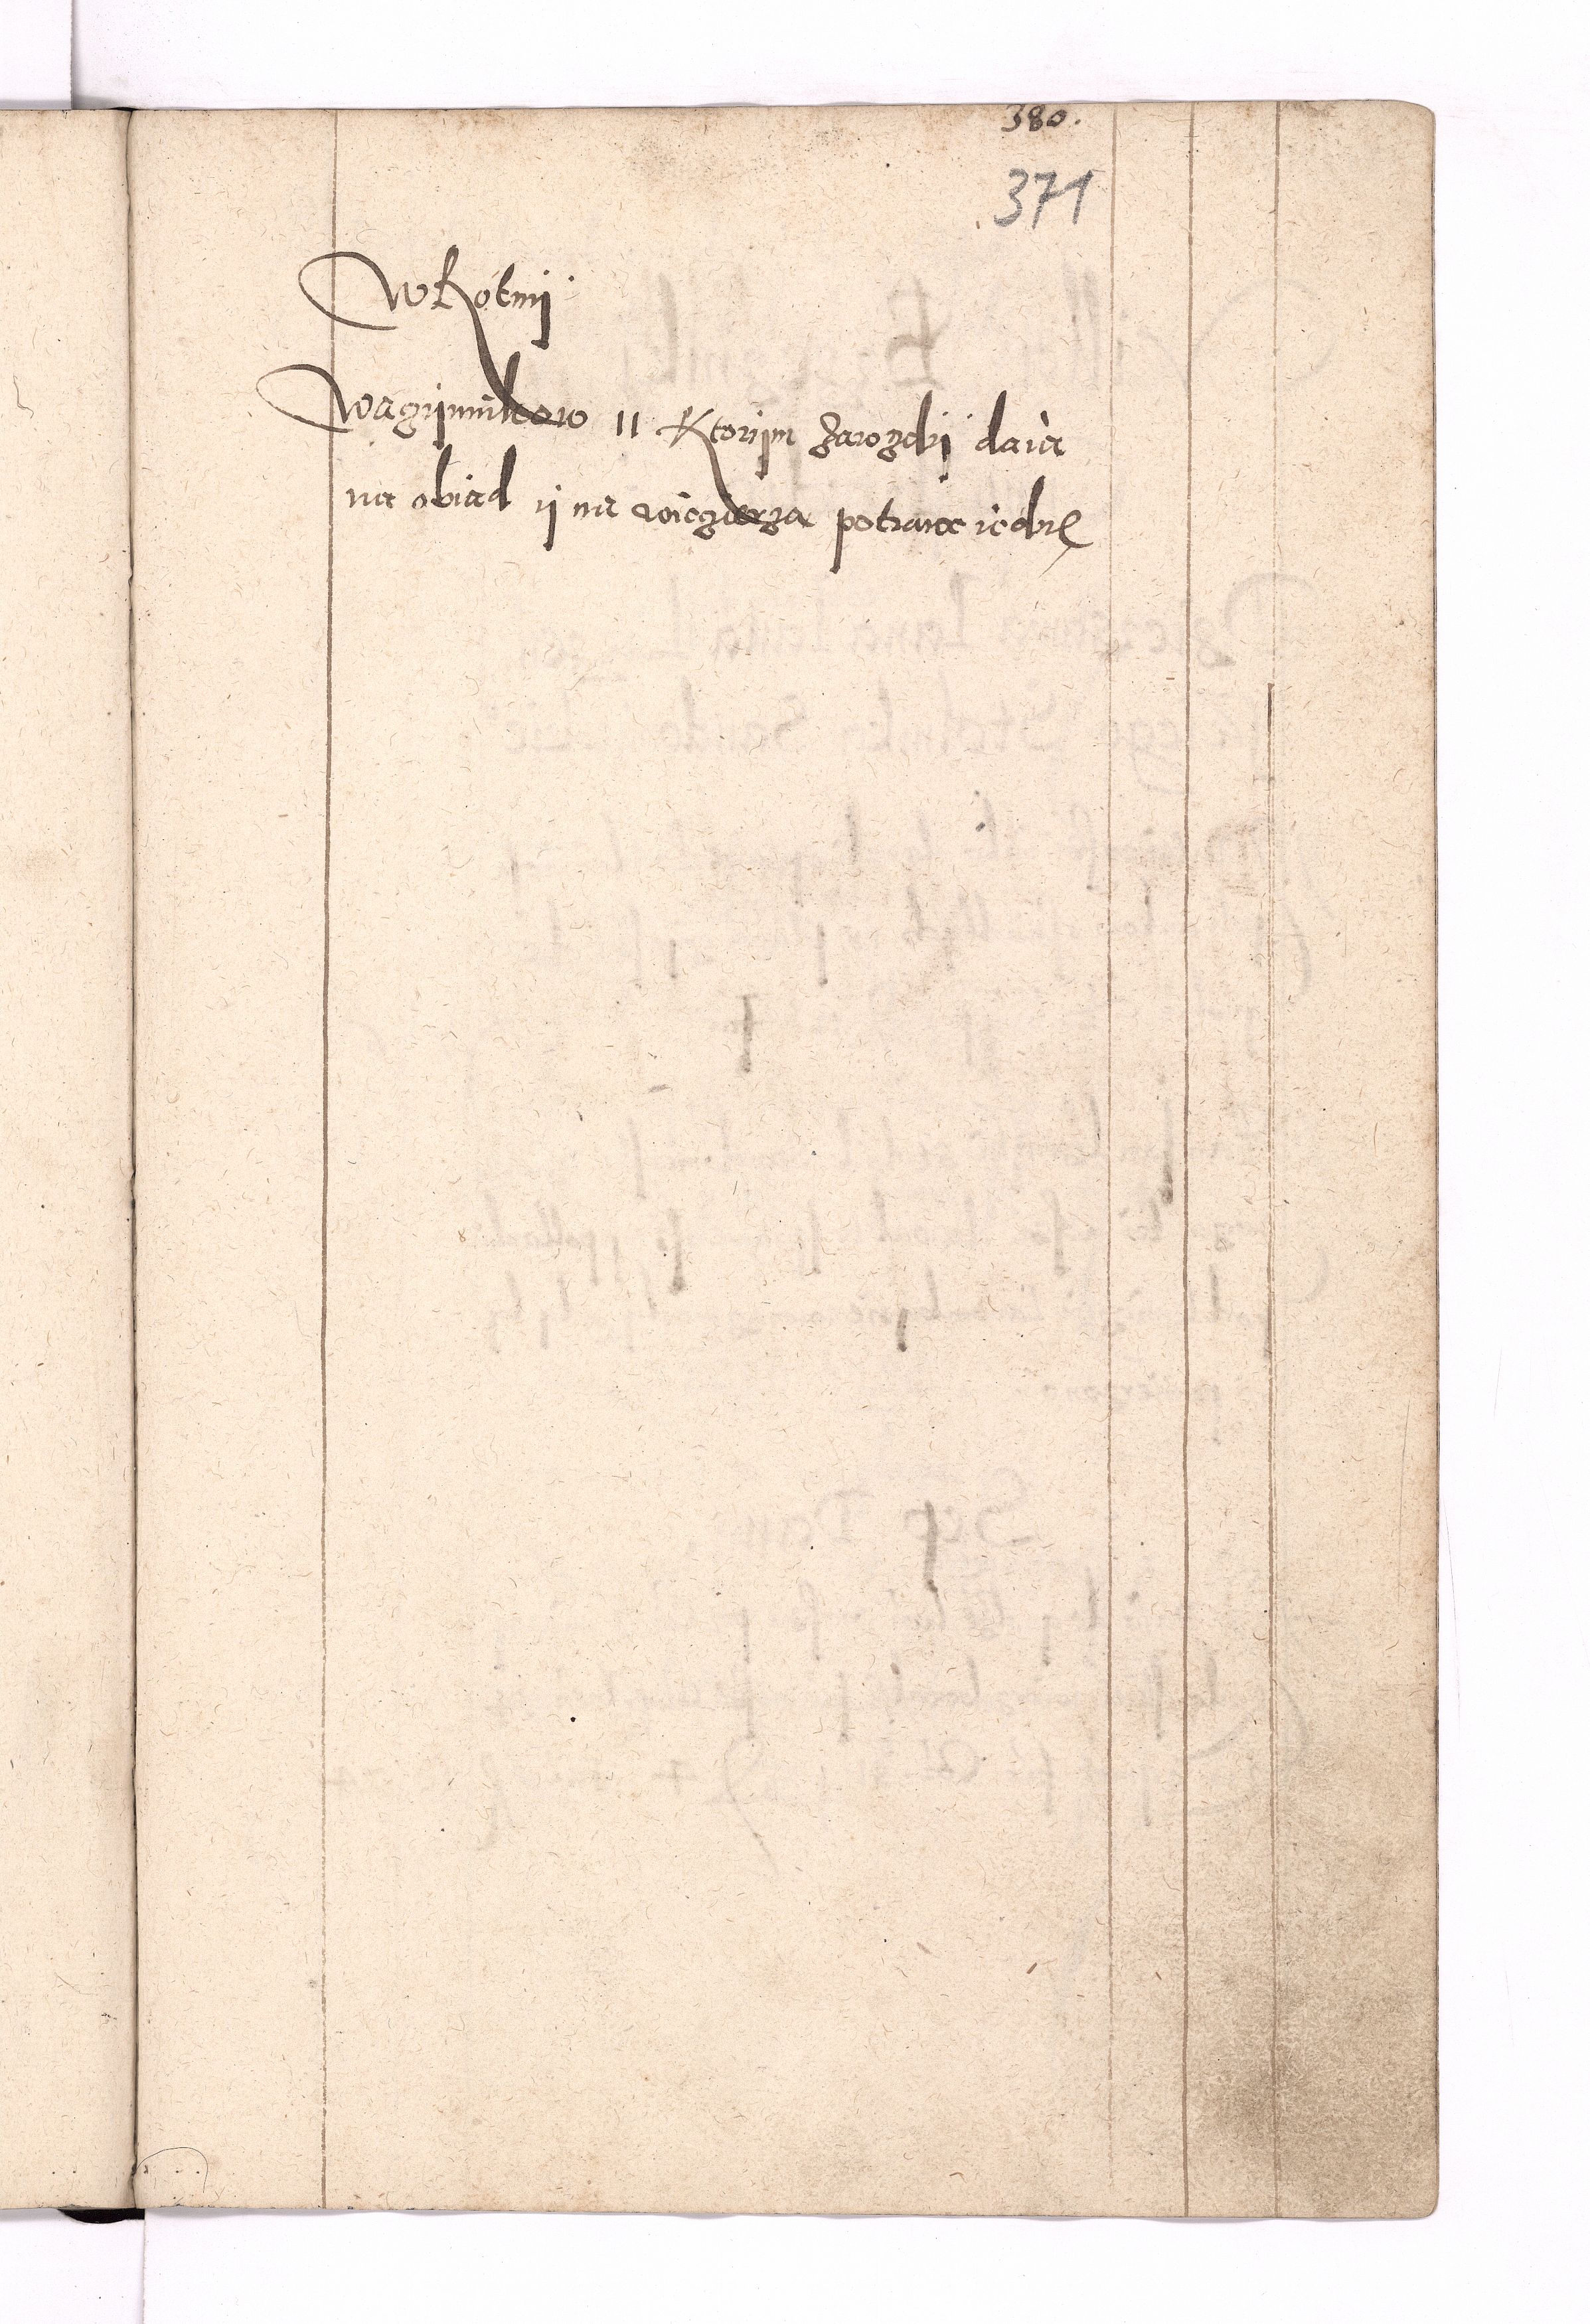 380.
371
W Kotmij
Wazijmikow 11 Ktorijm zawzdij daia
na obiad ij na wieczerza potrawe iednę